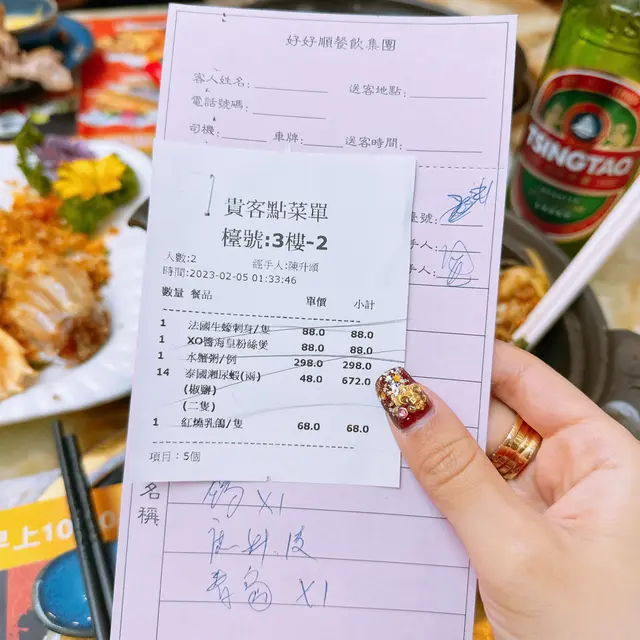 好好順餐飲集團
客人姓名:
送客地點:
電話號碼:
司機: 車牌: 送客時間:
貴客點菜單
檯號:3樓-2
人數:2 經手人:陳升頌
時間:2023-02-05 01:33:46
數量 餐品 單價 小計
1 法國生蠔刺身/隻 88.0 88.0
1 XO醬海皇粉絲煲 88.0 88.0
1 水蟹粥/例 298.0 298.0
14 泰國瀨尿蝦(兩) 48.0 672.0
(椒鹽)
(二隻)
1 紅燒乳鴿/隻 68.0 68.0
項目:5個
號:
手人:
手人:
名
稱
X1
X1
早上10
TSINGTAO